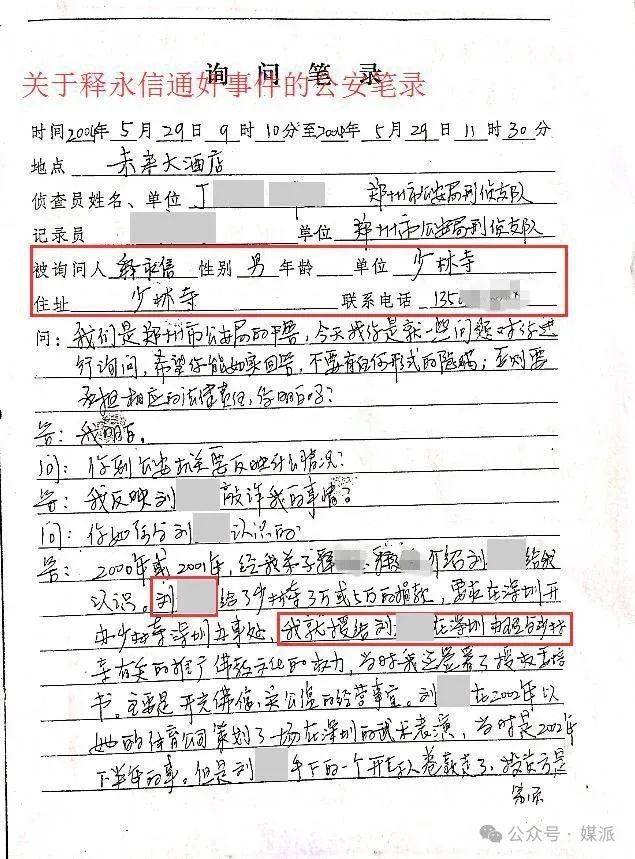 询问笔录
关于释永信通奸事件的公安笔录
时间2004年5月29日9时10分至2004年5月29日11时30分
地点 未来大酒店
侦查员姓名、单位 丁 郑州市公安局刑侦支队
记录员 单位 郑州市公安局刑侦支队
被询问人 释永信 性别 男 年龄 单位 少林寺
住址 少林寺 联系电话 135
问:我们是郑州市公安局的干警,今天找你是就一些问题对你进
行询问,希望你能如实回答,不要有任何形式的隐瞒;否则要
承担相应的法律责任,你明白吗?
答:我明白。
问:你到公安机关要反映什么情况?
答:我反映刘 敲诈我的事情。
问:你如何与刘 认识的
答:2000年或2001年,经我弟子释 介绍刘 给我
认识。刘 给了少林寺3万或5万的捐款,要在深圳开
办少林寺深圳办事处,我就授给刘 在深圳办理与少林
寺有关的推广佛教文化的权力,当时我还签署了授权委托
书。主要是开光佛信,实公范的经营事宜。刘 在2002年以
她的体育公司策划了一场在深圳的武术表演,当时是2002年
下半年的事。但是刘 手下的一个开车人卷款走了,投资方是
公众号·媒派